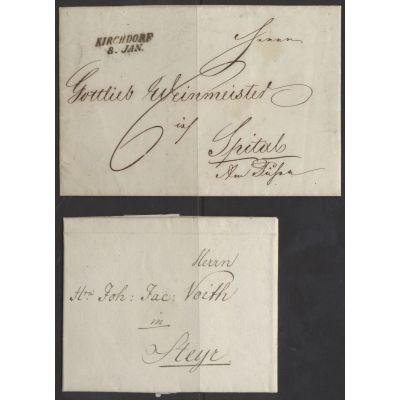 KIRCHDORF
8. JAN.
Herrn
Gottlieb Weinmeister
in
Spital
Am Pÿhrn
Herrn
Hrn Joh: Jac: Voith
in
Steyr.